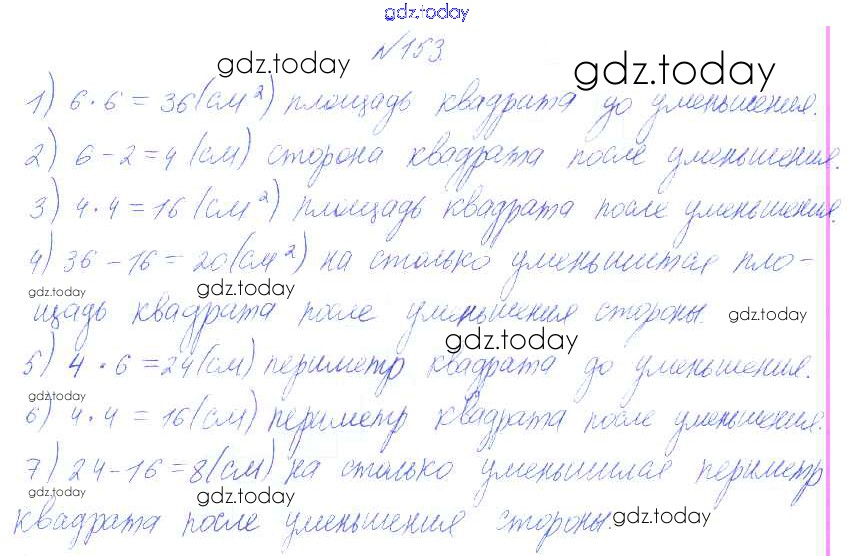 gdz.today
№153.
gdz.today
gdz.today
1) 6·6=36(см²) площадь квадрата до уменьшения.
2) 6-2=4(см) сторона квадрата после уменьшения.
3) 4·4=16(см²) площадь квадрата после уменьшения.
4) 36-16=20(см²) на столько уменьшитая пло-
gdz.today
gdz.today
щадь квадрата после уменьшения стороны.
gdz.today
gdz.today
5) 4·6=24(см) периметр квадрата до уменьшения.
gdz.today
gdz.today
6) 4·4=16(см) периметр квадрата после уменьшения.
7) 24-16=8(см) на столько уменьшилая периметр
gdz.today
gdz.today
квадрата после уменьшения стороны.
gdz.today